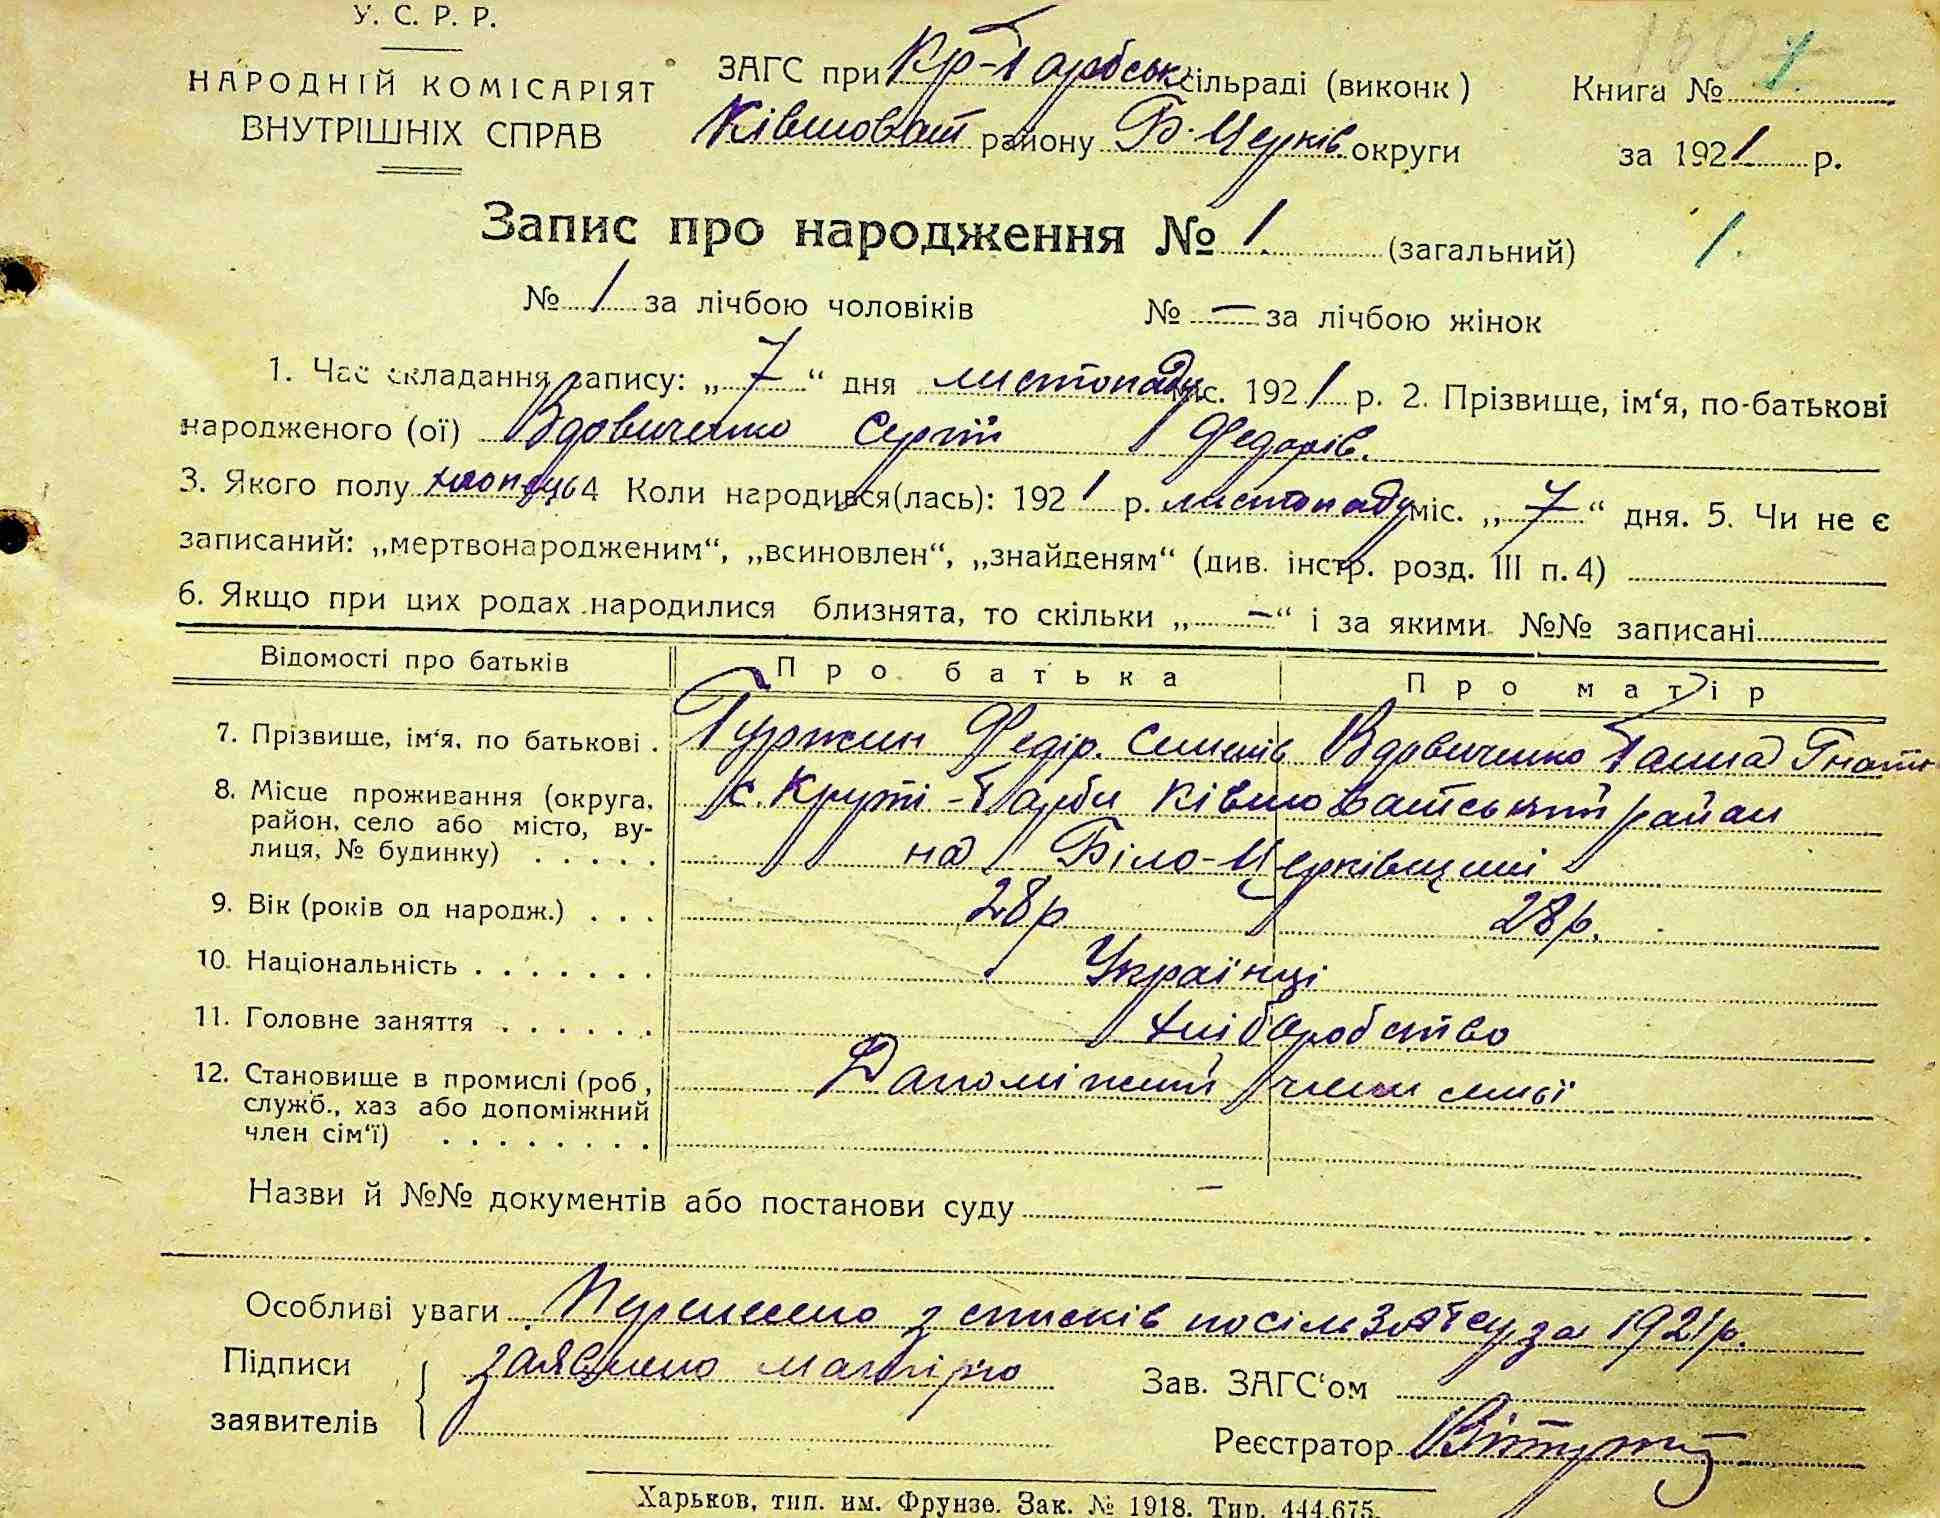 У. С. Р. Р.
НАРОДНІЙ КОМІСАРІЯТ
ВНУТРІШНІХ СПРАВ
ЗАГС при Кр-Гарбськ. сільраді (виконк)
Ківшоват району Б-Церків. округи
Книга № 1
за 1921 р.
Запис про народження № 1. (загальний)
1.
№ 1 за лічбою чоловіків № — за лічбою жінок
1. Час складання запису: „7“ дня листопаду міс. 1921 р. 2. Прізвище, ім‘я, по-батькові
народженого (ої) Вдовиченко Сергій Федорів.
3. Якого полу хлопець 4 Коли народився(лась): 1921 р. листопаду міс. „7“ дня. 5. Чи не є
записаний: „мертвонародженим“, „всиновлен“, „знайденям“ (див. інстр. розд. III п. 4)
6. Якщо при цих родах народилися близнята, то скільки „—“ і за якими №№ записані
Відомості про батьків Про батька Про матір
7. Прізвище, ім‘я, по батькові . Гуржин Федір. Семенів Вдовиченко Ганна Гнатн
8. Місце проживання (округа, с. Круті-Гарби Ківшоватський район
район, село або місто, ву-
лиця, № будинку) . . . . . на Біло-Церківщині
9. Вік (років од народж.) . . . 28р 28р.
10. Національність . . . . . . . Українці
11. Головне заняття . . . . . . Хліборобство
12. Становище в промислі (роб, Допоміжний член семьї
служб., хаз або допоміжний
член сім‘ї) . . . . . . . .
Назви й №№ документів або постанови суду —
Особливі уваги . Перенесено з списків посім ЗАГСу за 1921р.
Підписи заявлено матірю
заявителів
Зав. ЗАГС‘ом
Реєстратор
Харьков, тип. им. Фрунзе. Зак. № 1918. Тир. 444.675.